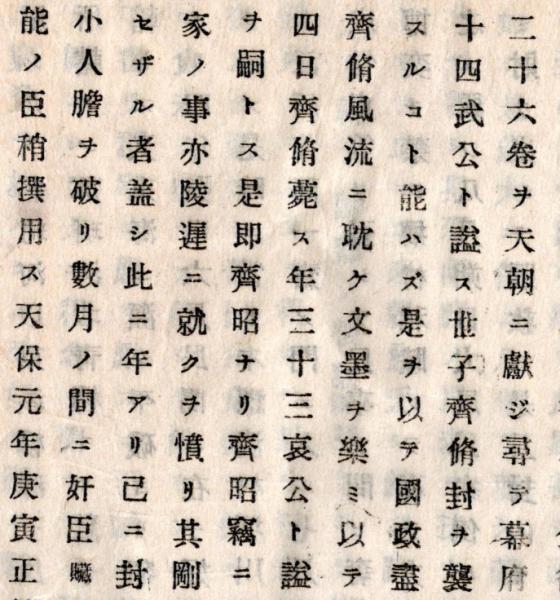 二十六卷ヲ天朝ニ獻ジ尋テ幕府
十四武公ト謚ス世子齊脩封ヲ襲
スルコト能ハズ是ヲ以テ國政盡
齊脩風流ニ耽ケ文墨ヲ樂ミ以テ
四日齊脩薨ス年三十三哀公ト謚
ヲ嗣トス是即齊昭ナリ齊昭竊ニ
家ノ事亦陵遲ニ就クヲ憤リ其剛
セザル者盖シ此ニ年アリ己ニ封
小人膽ヲ破リ數月ノ間ニ奸臣
能ノ臣稍撰用ス天保元年庚寅正